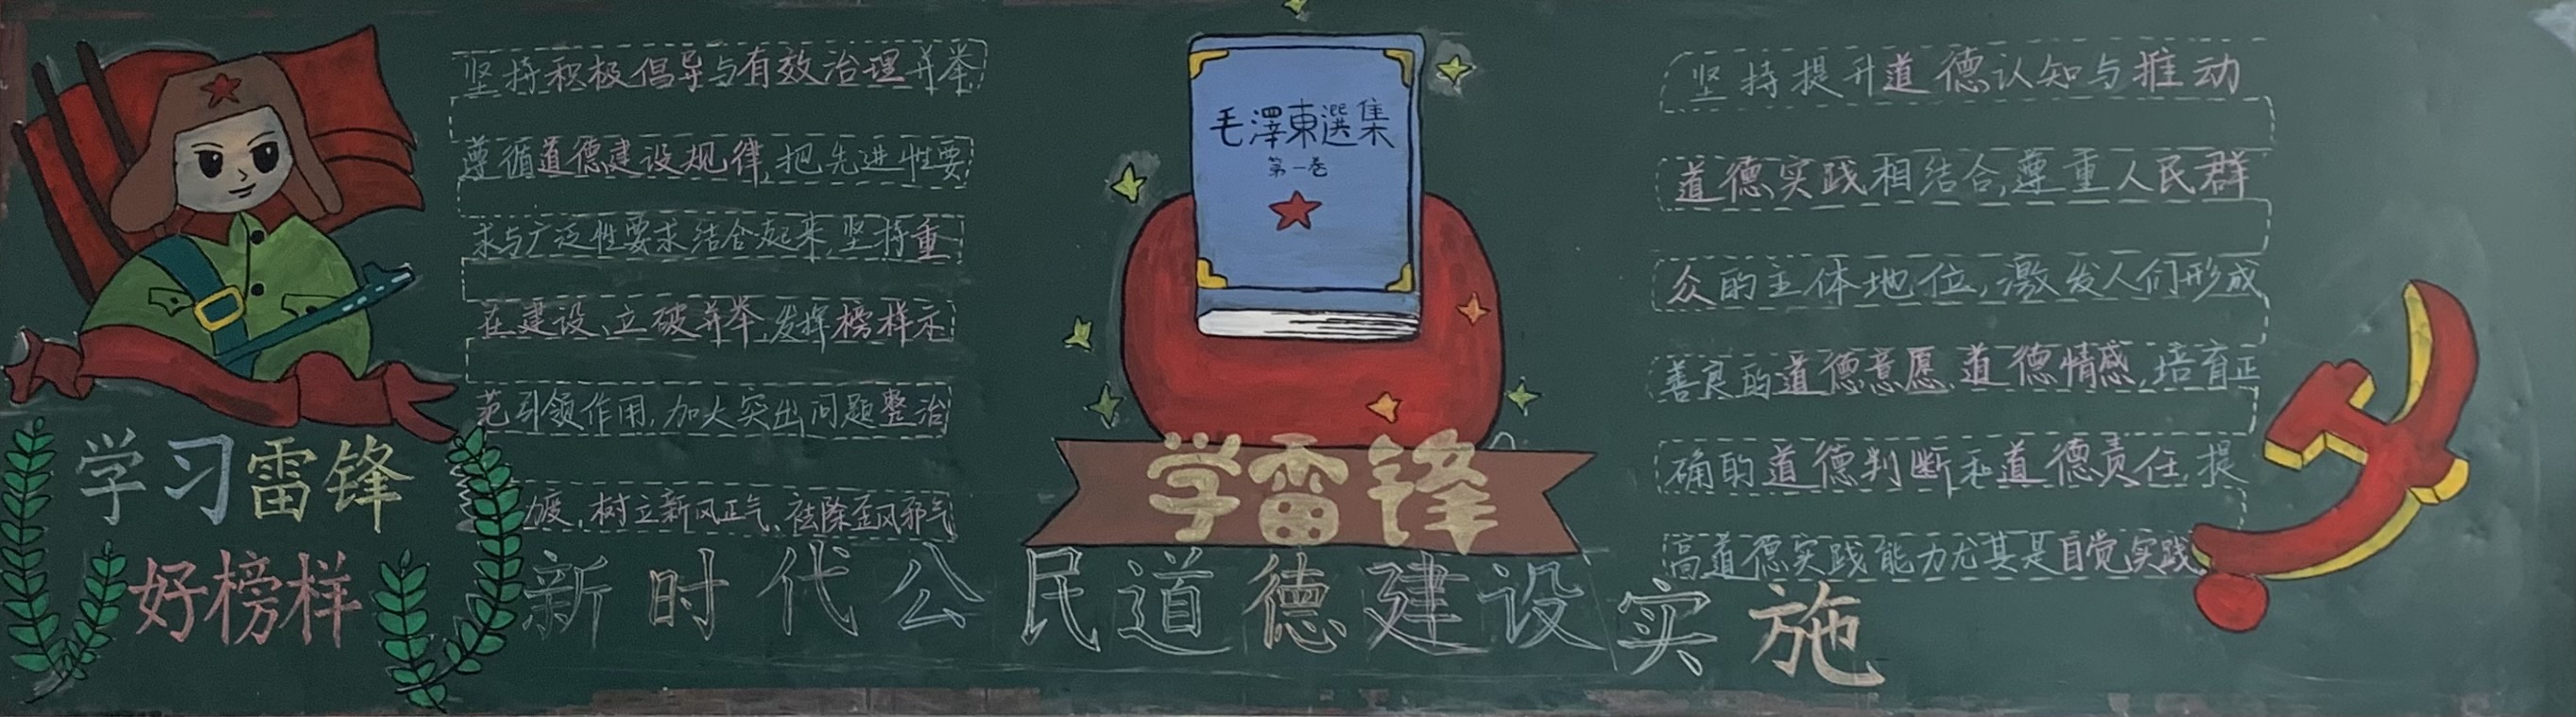 坚持积极倡导与有效治理并举
遵循道德建设规律,把先进性要
求与广泛性要求结合起来,坚持重
在建设、立破并举,发挥榜样示
范引领作用,加大突出问题整治
力度,树立新风正气、祛除歪风邪气
学习雷锋
好榜样
毛澤東選集
第一卷
学雷锋
新时代公民道德建设实施
坚持提升道德认知与推动
道德实践相结合,尊重人民群
众的主体地位,激发人们形成
善良的道德意愿、道德情感,培育正
确的道德判断和道德责任,提
高道德实践能力尤其是自觉实践